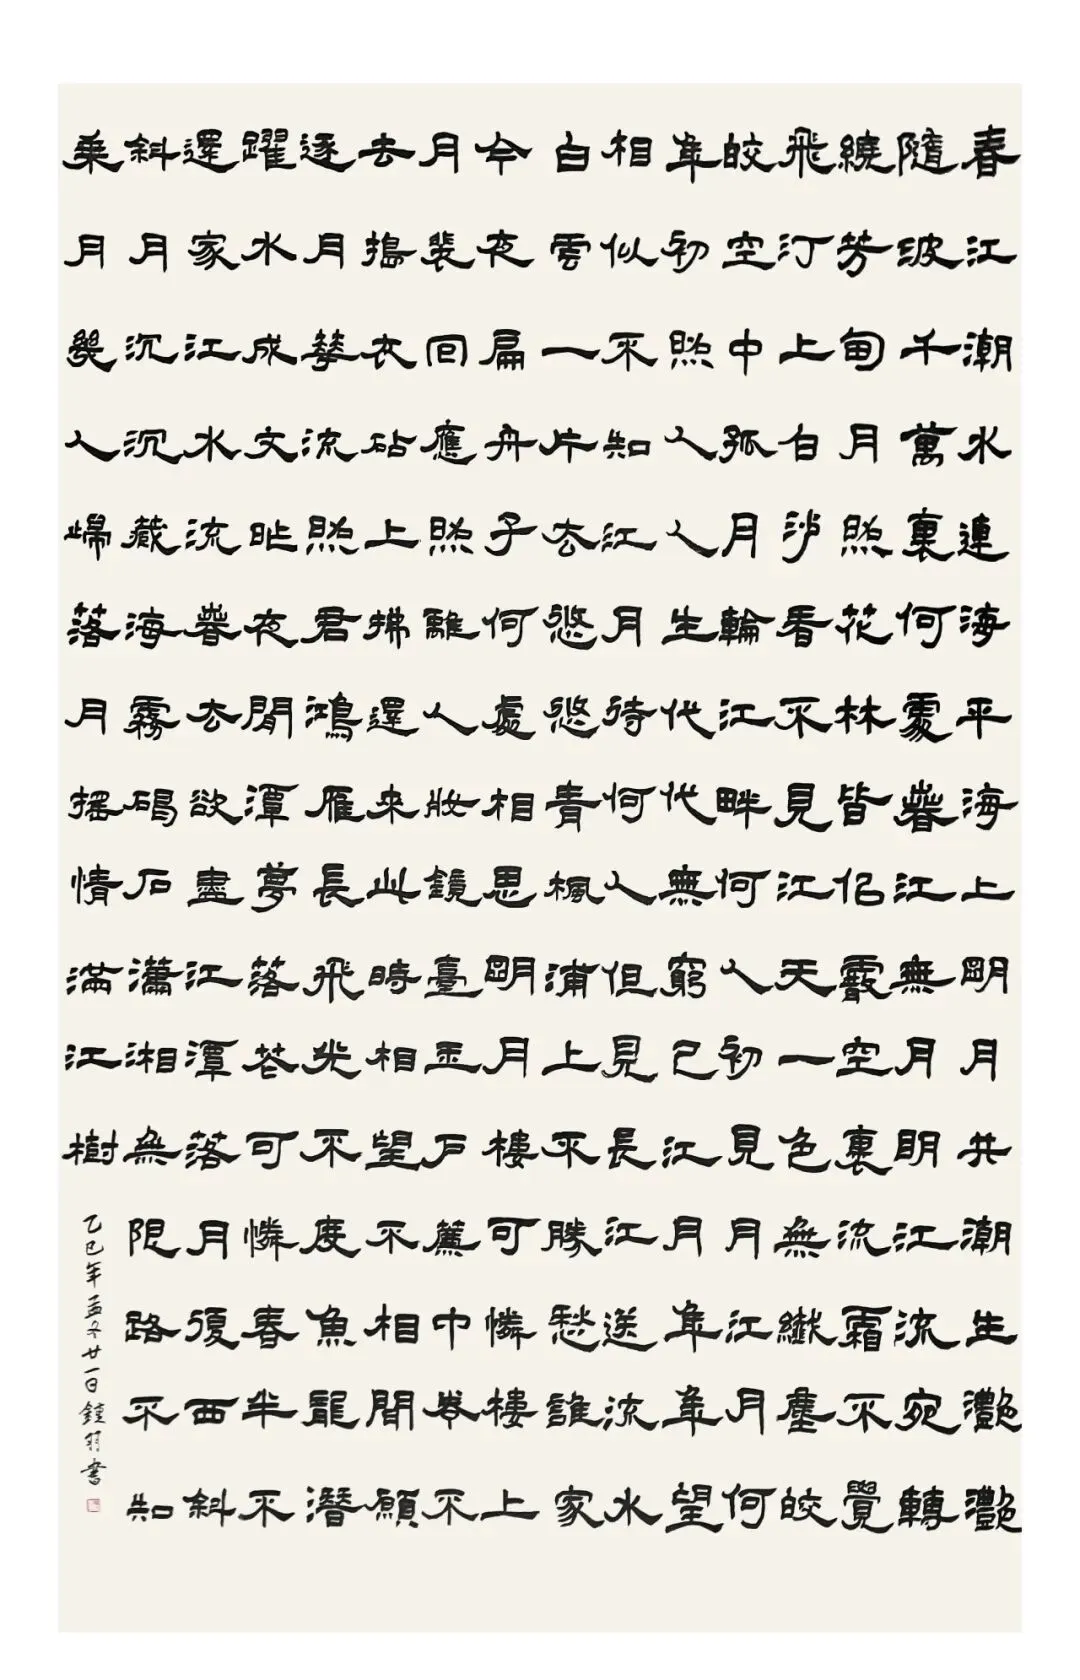 春江潮水連海平海上明月共潮生灩灩
隨波千萬裏何處春江無月明江流宛轉
繞芳甸月照花林皆似霰空裏流霜不覺
飛汀上白沙看不見江天一色無纖塵皎
皎空中孤月輪江畔何人初見月江月何
年初照人人生代代無窮已江月年年望
相似不知江月待何人但見長江送流水
白雲一片去悠悠青楓浦上不勝愁誰家
今夜扁舟子何處相思明月樓可憐樓上
月裴回應照離人妝鏡臺玉戶簾中卷不
去搗衣砧上拂還來此時相望不相聞願
逐月華流照君鴻雁長飛光不度魚龍潛
躍水成文昨夜閒潭夢落花可憐春半不
還家江水流春去欲盡江潭落月復西斜
斜月沉沉藏海霧碣石瀟湘無限路不知
乘月幾人歸落月搖情滿江樹
乙巳年孟冬廿一日鐘羽書